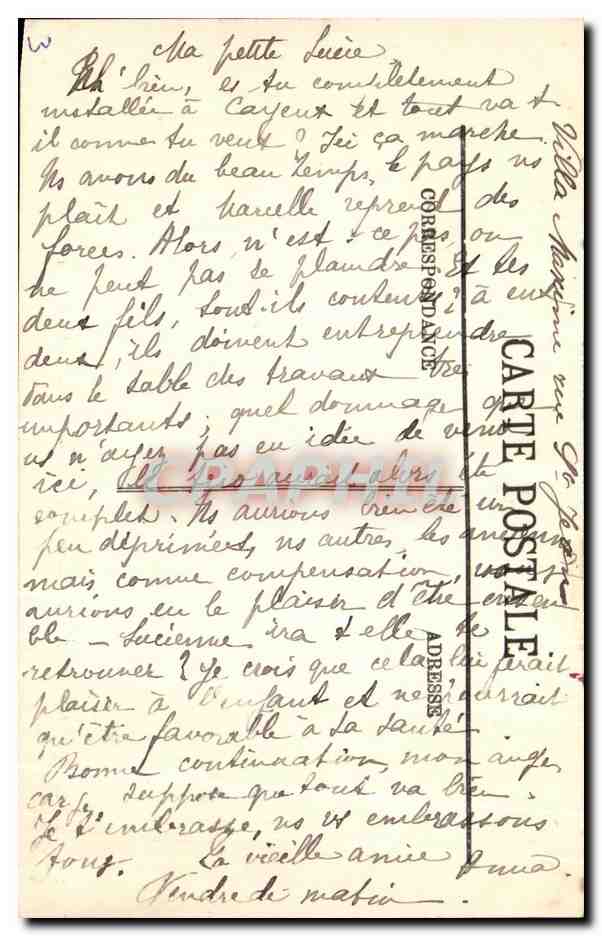 Ma petite Lucie
Eh bien, es tu complètement
installée à Cayeux et tout va t
il comme tu veux ? Ici ça marche
Ns avons du beau temps, le pays ns
plaît et Marcelle reprend des
forces. Alors, n'est-ce pas, on
ne peut pas se plaindre. Et les
deux fils, sont-ils contents ? à eux
deux, ils doivent entreprendre
dans le sable des travaux très
importants, quel dommage que
vs n'ayez pas eu idée de venir
ici, alors été
complet. Ns aurions été un
peu déprimées, ns autres, les anciennes
mais comme compensation, nous
aurions eu le plaisir d'être ensem
ble - Lucienne ira t elle te
retrouver ? Je crois que cela lui ferait
plaisir à l'enfant et ne pourrait
qu'être favorable à sa santé
Bonne continuation, mon ange,
car je suppose que tout va bien.
Je t'embrasse, ns vs embrassons
tous. La vieille amie
Vendredi matin.
Villa Maxime rue St Jean
CORRESPONDANCE
CARTE POSTALE
ADRESSE
CPAPHIL